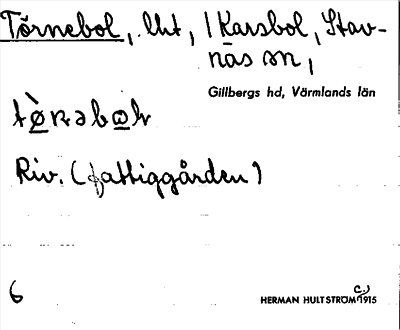 Törnebol, lht, / Karsbol, Stav-
näs sn,
Gillbergs hd, Värmlands län
Riv. (fattiggården)
6
HERMAN HULTSTRÖM c.) 1915